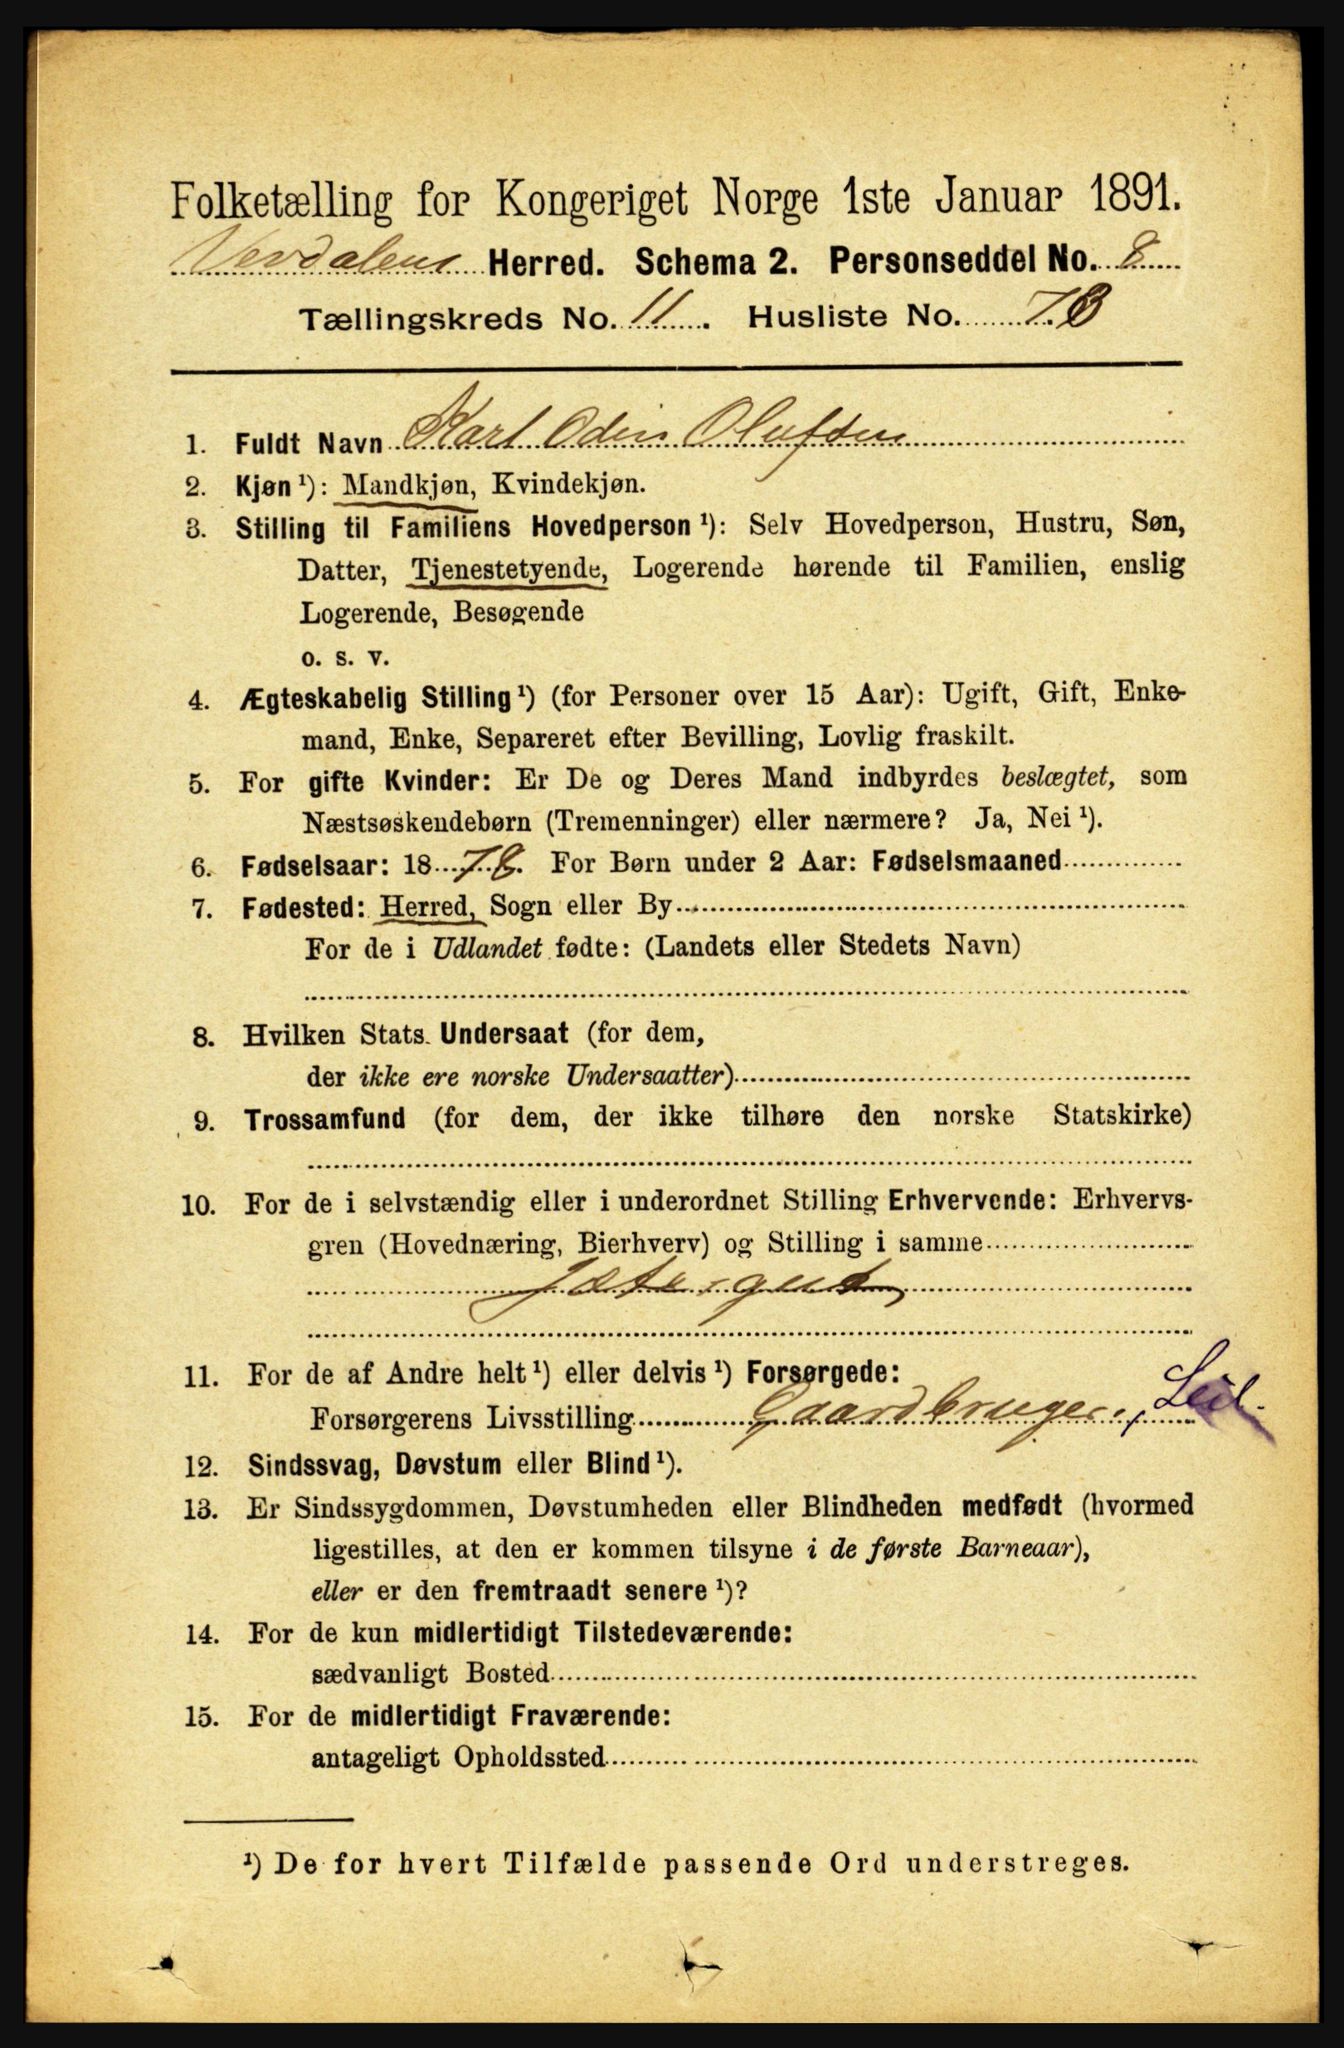 Folketælling for Kongeriget Norge 1ste Januar 1891.
Verdalens Herred. Schema 2. Personseddel No. 8
Tællingskreds No. 11. Husliste No. 73
1. Fuldt Navn Karl Odin Olufsen
2. Kjøn ¹): Mandkjøn, Kvindekjøn.
3. Stilling til Familiens Hovedperson ¹): Selv Hovedperson, Hustru, Søn,
Datter, Tjenestetyende, Logerende hørende til Familien, enslig
Logerende, Besøgende
o. s. v.
4. Ægteskabelig Stilling ¹) (for Personer over 15 Aar): Ugift, Gift, Enke-
mand, Enke, Separeret efter Bevilling, Lovlig fraskilt.
5. For gifte Kvinder: Er De og Deres Mand indbyrdes beslægtet, som
Næstsøskendebørn (Tremenninger) eller nærmere? Ja, Nei ¹).
6. Fødselsaar: 1878. For Børn under 2 Aar: Fødselsmaaned
7. Fødested: Herred, Sogn eller By
For de i Udlandet fødte: (Landets eller Stedets Navn)
8. Hvilken Stats Undersaat (for dem,
der ikke ere norske Undersaatter)
9. Trossamfund (for dem, der ikke tilhøre den norske Statskirke)
10. For de i selvstændig eller i underordnet Stilling Erhvervende: Erhvervs-
gren (Hovednæring, Bierhverv) og Stilling i samme
Jætergut
11. For de af Andre helt ¹) eller delvis ¹) Forsørgede:
Forsørgerens Livsstilling Gaardbruger, Leil.
12. Sindssvag, Døvstum eller Blind ¹).
13. Er Sindssygdommen, Døvstumheden eller Blindheden medfødt (hvormed
ligestilles, at den er kommen tilsyne i de første Barneaar),
eller er den fremtraadt senere ¹)?
14. For de kun midlertidigt Tilstedeværende:
sædvanligt Bosted
15. For de midlertidigt Fraværende:
antageligt Opholdssted
¹) De for hvert Tilfælde passende Ord understreges.